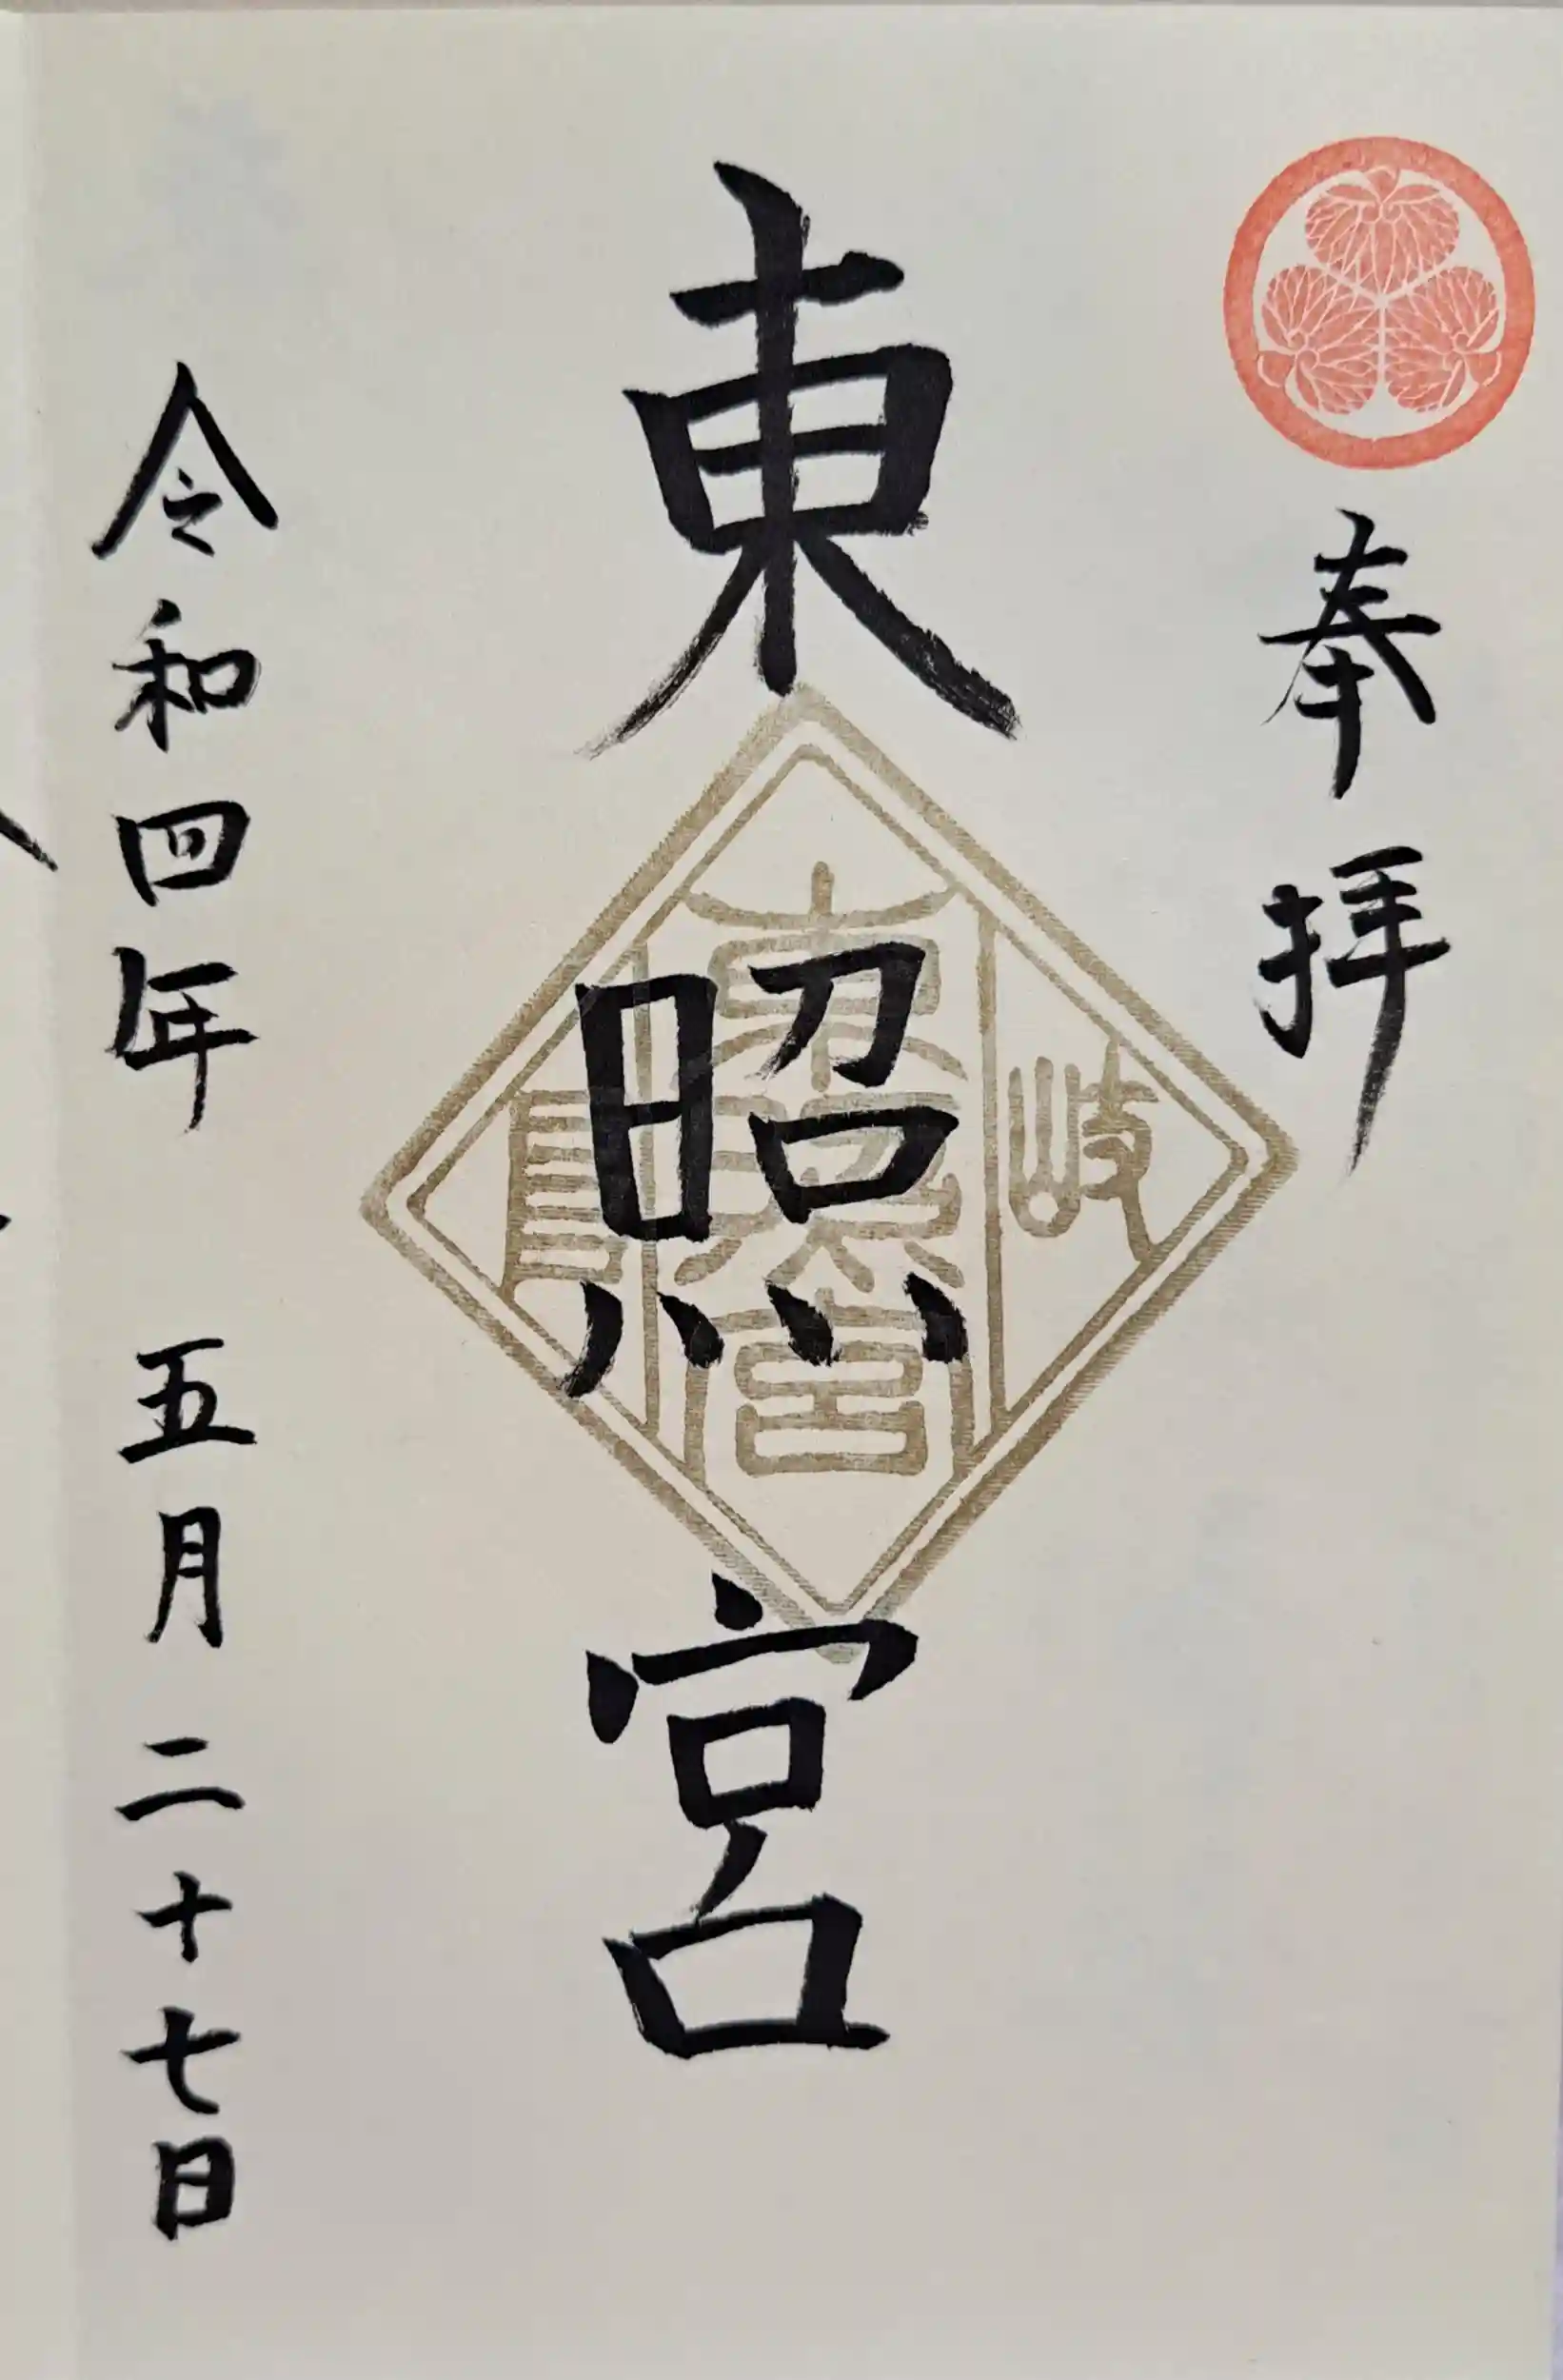 奉拝
東照宮
岐阜
東照宮
令和四年 五月二十七日